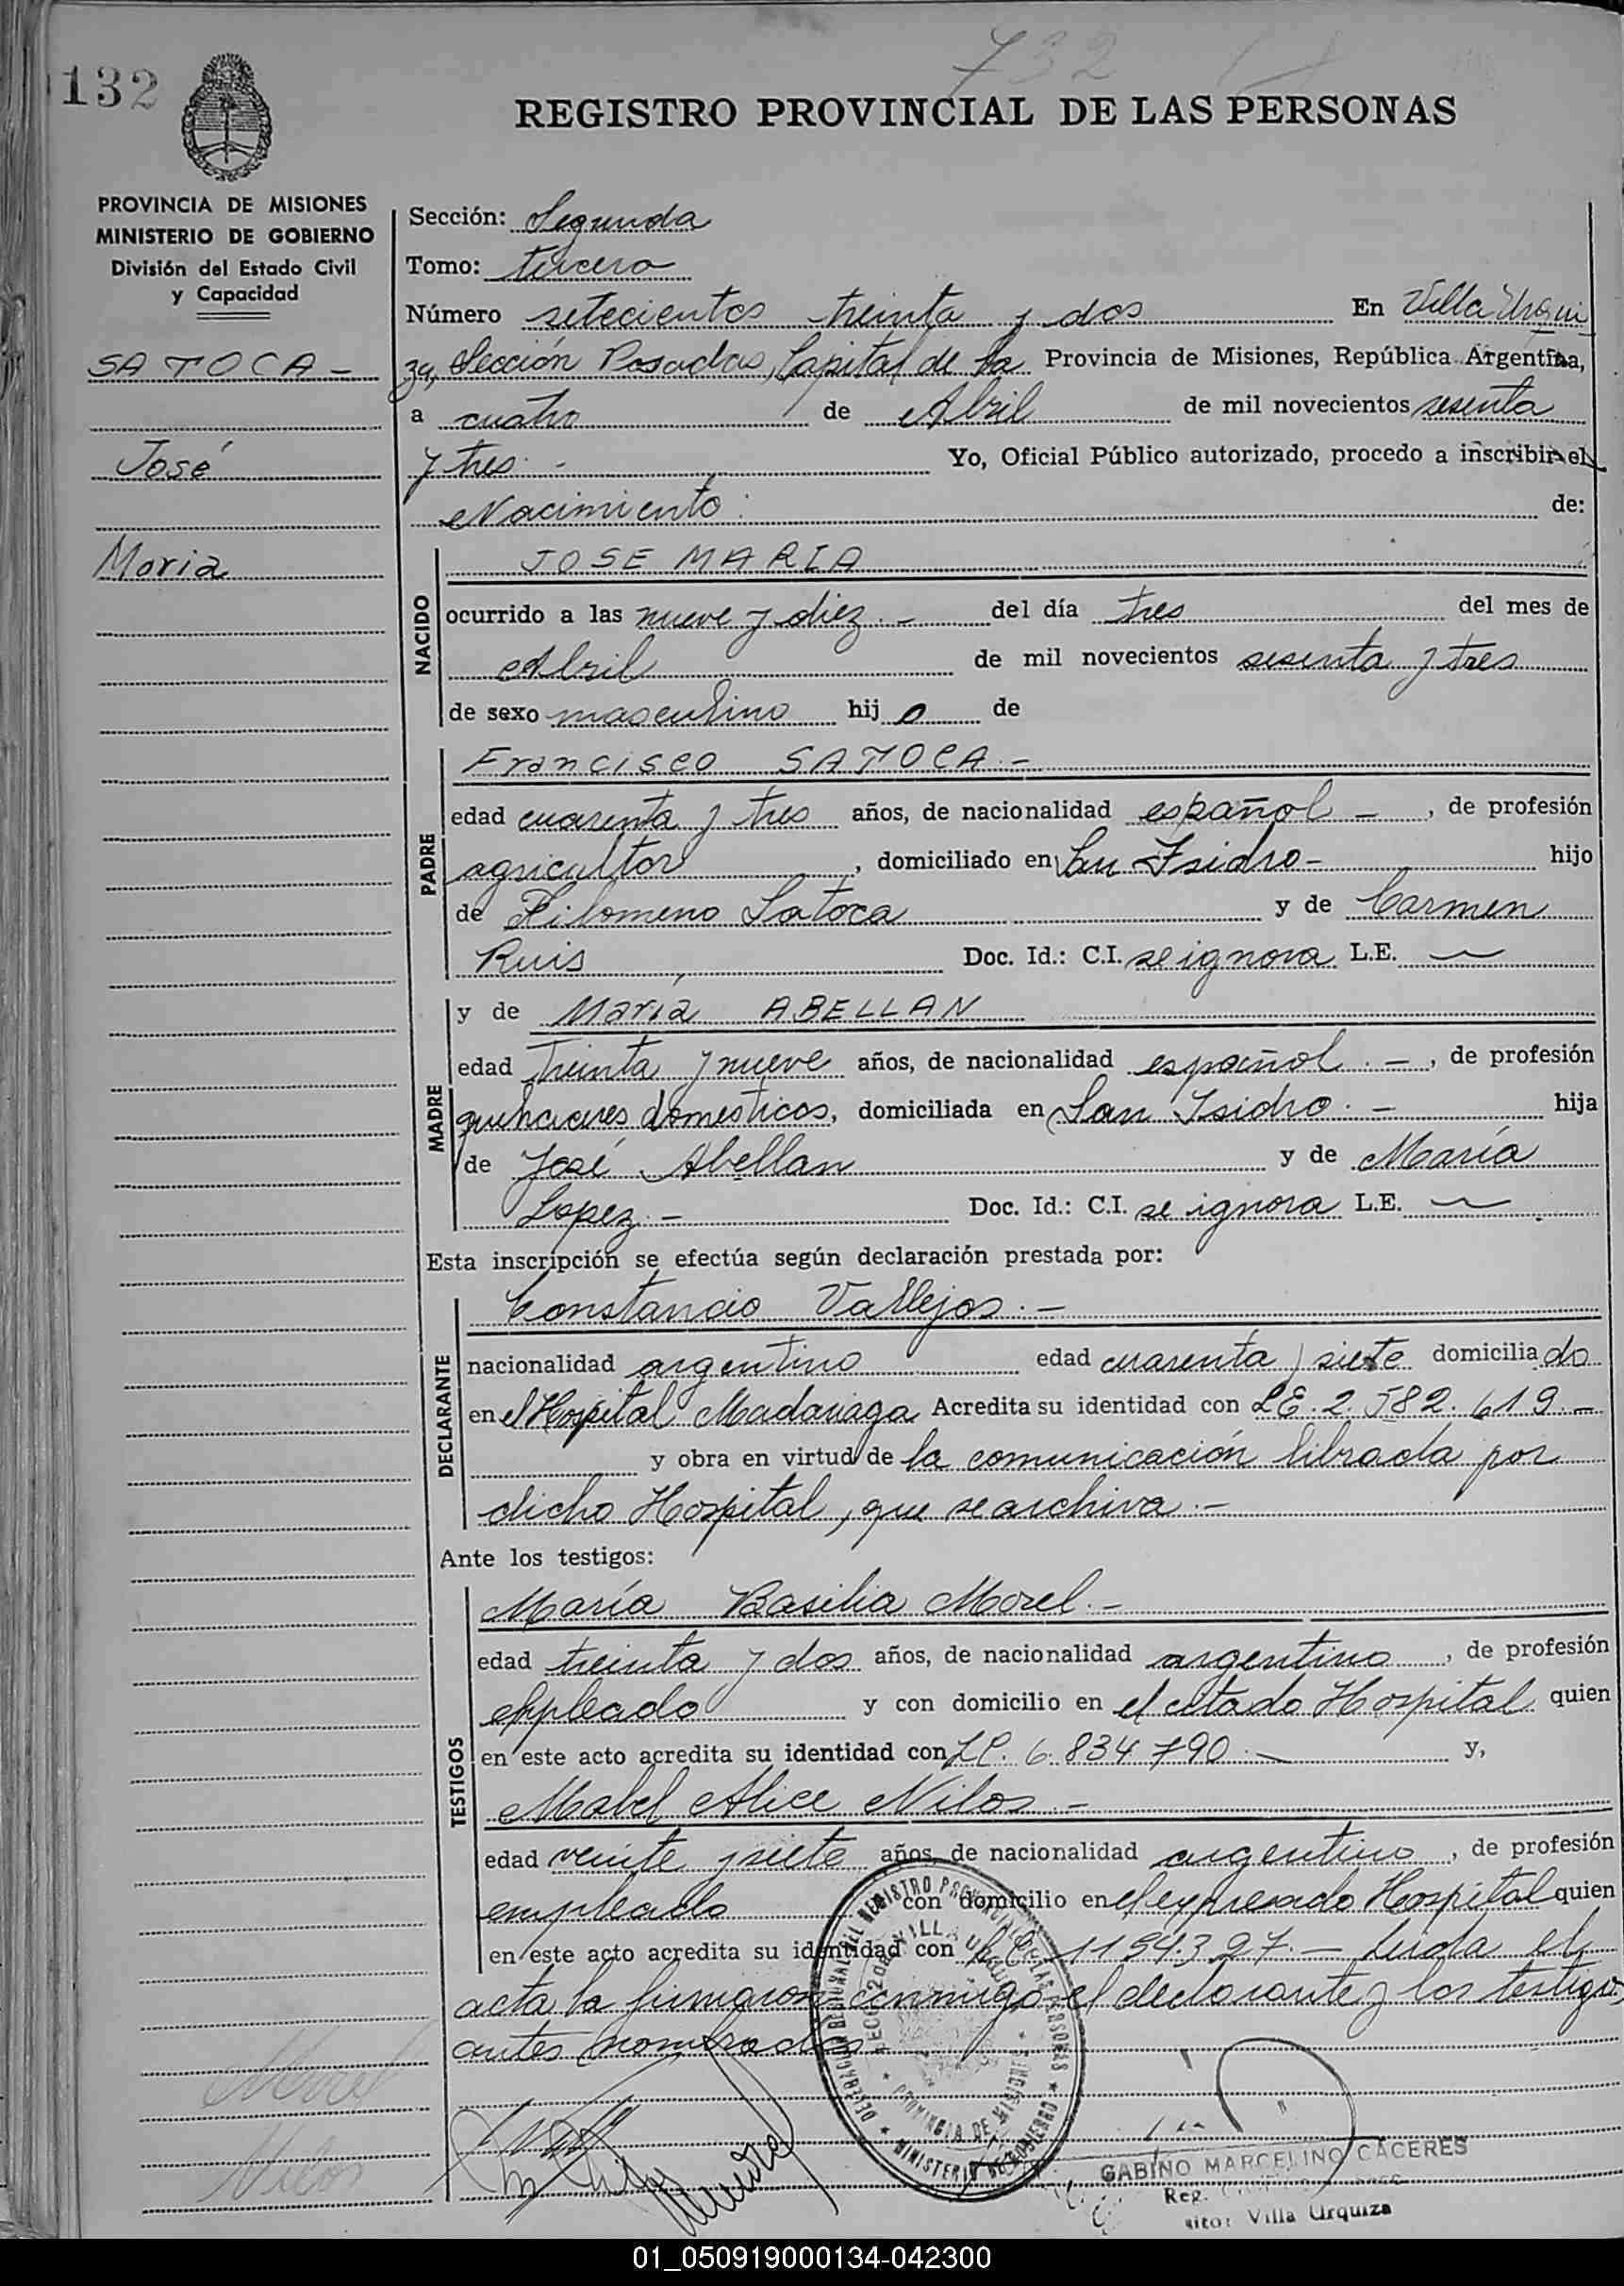 732
132
REGISTRO PROVINCIAL DE LAS PERSONAS
PROVINCIA DE MISIONES
MINISTERIO DE GOBIERNO
División del Estado Civil
y Capacidad
SATOCA -
José
Maria
Sección: Segunda
Tomo: tercero
Número setecientos treinta y dos En Villa Urqui
za, Sección Posadas, Capital de la Provincia de Misiones, República Argentina,
a cuatro de Abril de mil novecientos sesenta
y tres. - Yo, Oficial Público autorizado, procedo a inscribir el
Nacimiento: de:
NACIDO
JOSE MARIA
ocurrido a las nueve y diez. - del día tres del mes de
Abril de mil novecientos sesenta y tres
de sexo masculino hij o de
PADRE
Francisco SATOCA. -
edad cuarenta y tres años, de nacionalidad español -, de profesión
agricultor, domiciliado en San Isidro - hijo
de Filomeno Satoca y de Carmen
Ruis Doc. Id.: C.I. se ignora L.E. —
MADRE
y de María ABELLAN
edad treinta y nueve años, de nacionalidad español. -, de profesión
quehaceres domesticos, domiciliada en San Isidro. - hija
de José Abellan y de María
Lopez. - Doc. Id.: C.I. se ignora L.E. —
Esta inscripción se efectúa según declaración prestada por:
DECLARANTE
Constancio Vallejos. -
nacionalidad argentino edad cuarenta y siete domicilia do
en el Hospital Madariaga Acredita su identidad con LE. 2.582.619. -
y obra en virtud de la comunicación librada por
dicho Hospital, que se archiva. -
Ante los testigos:
TESTIGOS
María Basilia Morel. -
edad treinta y dos años, de nacionalidad argentino, de profesión
empleado y con domicilio en el citado Hospital quien
en este acto acredita su identidad con LC. 6.834.790. - y,
Mabel Alice Nilos -
edad veinte y siete años, de nacionalidad argentino, de profesión
empleado con domicilio en el expresado Hospital quien
en este acto acredita su identidad con 1154.397. - Leida el
acta la firmaron conmigo el declarante y los testigos
antes nombrados
Morel
Nilos
DELEGACION REGIONAL DEL REGISTRO PROVINCIAL DE LAS PERSONAS
MINISTERIO DE GOBIERNO
VILLA URQUIZA
PROVINCIA DE MISIONES
GABINO MARCELINO CACERES
Rep.
Villa Urquiza
01_050919000134-042300